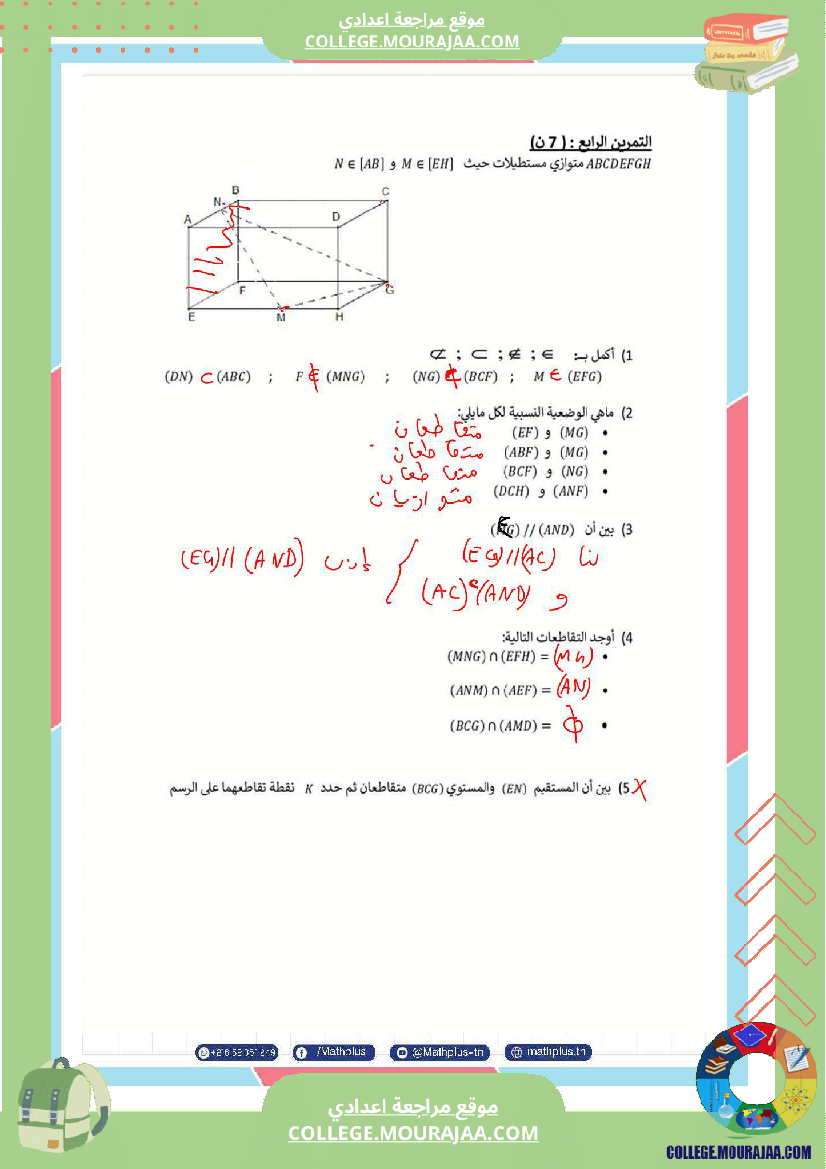 موقع مراجعة اعدادي
COLLEGE.MOURAJAA.COM
التمرين الرابع : ( 7 ن)
ABCDEFGH متوازي مستطيلات حيث M ∈ [EH] و N ∈ [AB]
B
C
N
A
D
F
G
E
M
H
1) أكمل بـ: ∈ ; ∉ ; ⊂ ; ⊄
(DN) ⊂ (ABC) ; F ∉ (MNG) ; (NG) ⊄ (BCF) ; M ∈ (EFG)
2) ماهي الوضعية النسبية لكل مايلي:
• (MG) و (EF) متقاطعان
• (MG) و (ABF) متقاطعان
• (NG) و (BCF) متقاطعان
• (ANF) و (DCH) متوازيان
3) بين أن (EG) // (AND)
لنا (EG)//(AC)
و (AC)⊂(AND)
إذن (EG)//(AND)
4) أوجد التقاطعات التالية:
• (MNG) ∩ (EFH) = (MG)
• (ANM) ∩ (AEF) = (AN)
• (BCG) ∩ (AMD) = ϕ
5) بين أن المستقيم (EN) والمستوي (BCG) متقاطعان ثم حدد K نقطة تقاطعهما على الرسم
/Mathplus
@Mathplus-tn
mathplus.tn
موقع مراجعة اعدادي
COLLEGE.MOURAJAA.COM
COLLEGE.MOURAJAA.COM